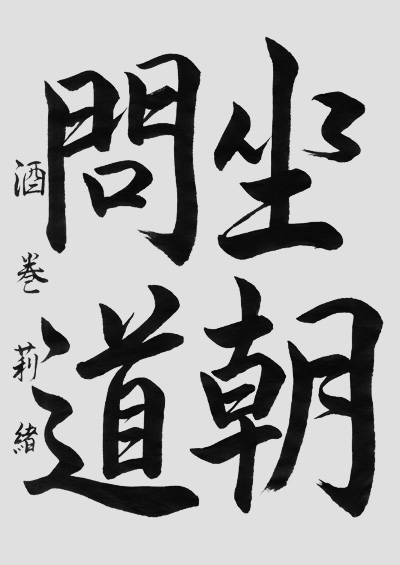 坐朝
問道
酒巻莉緒